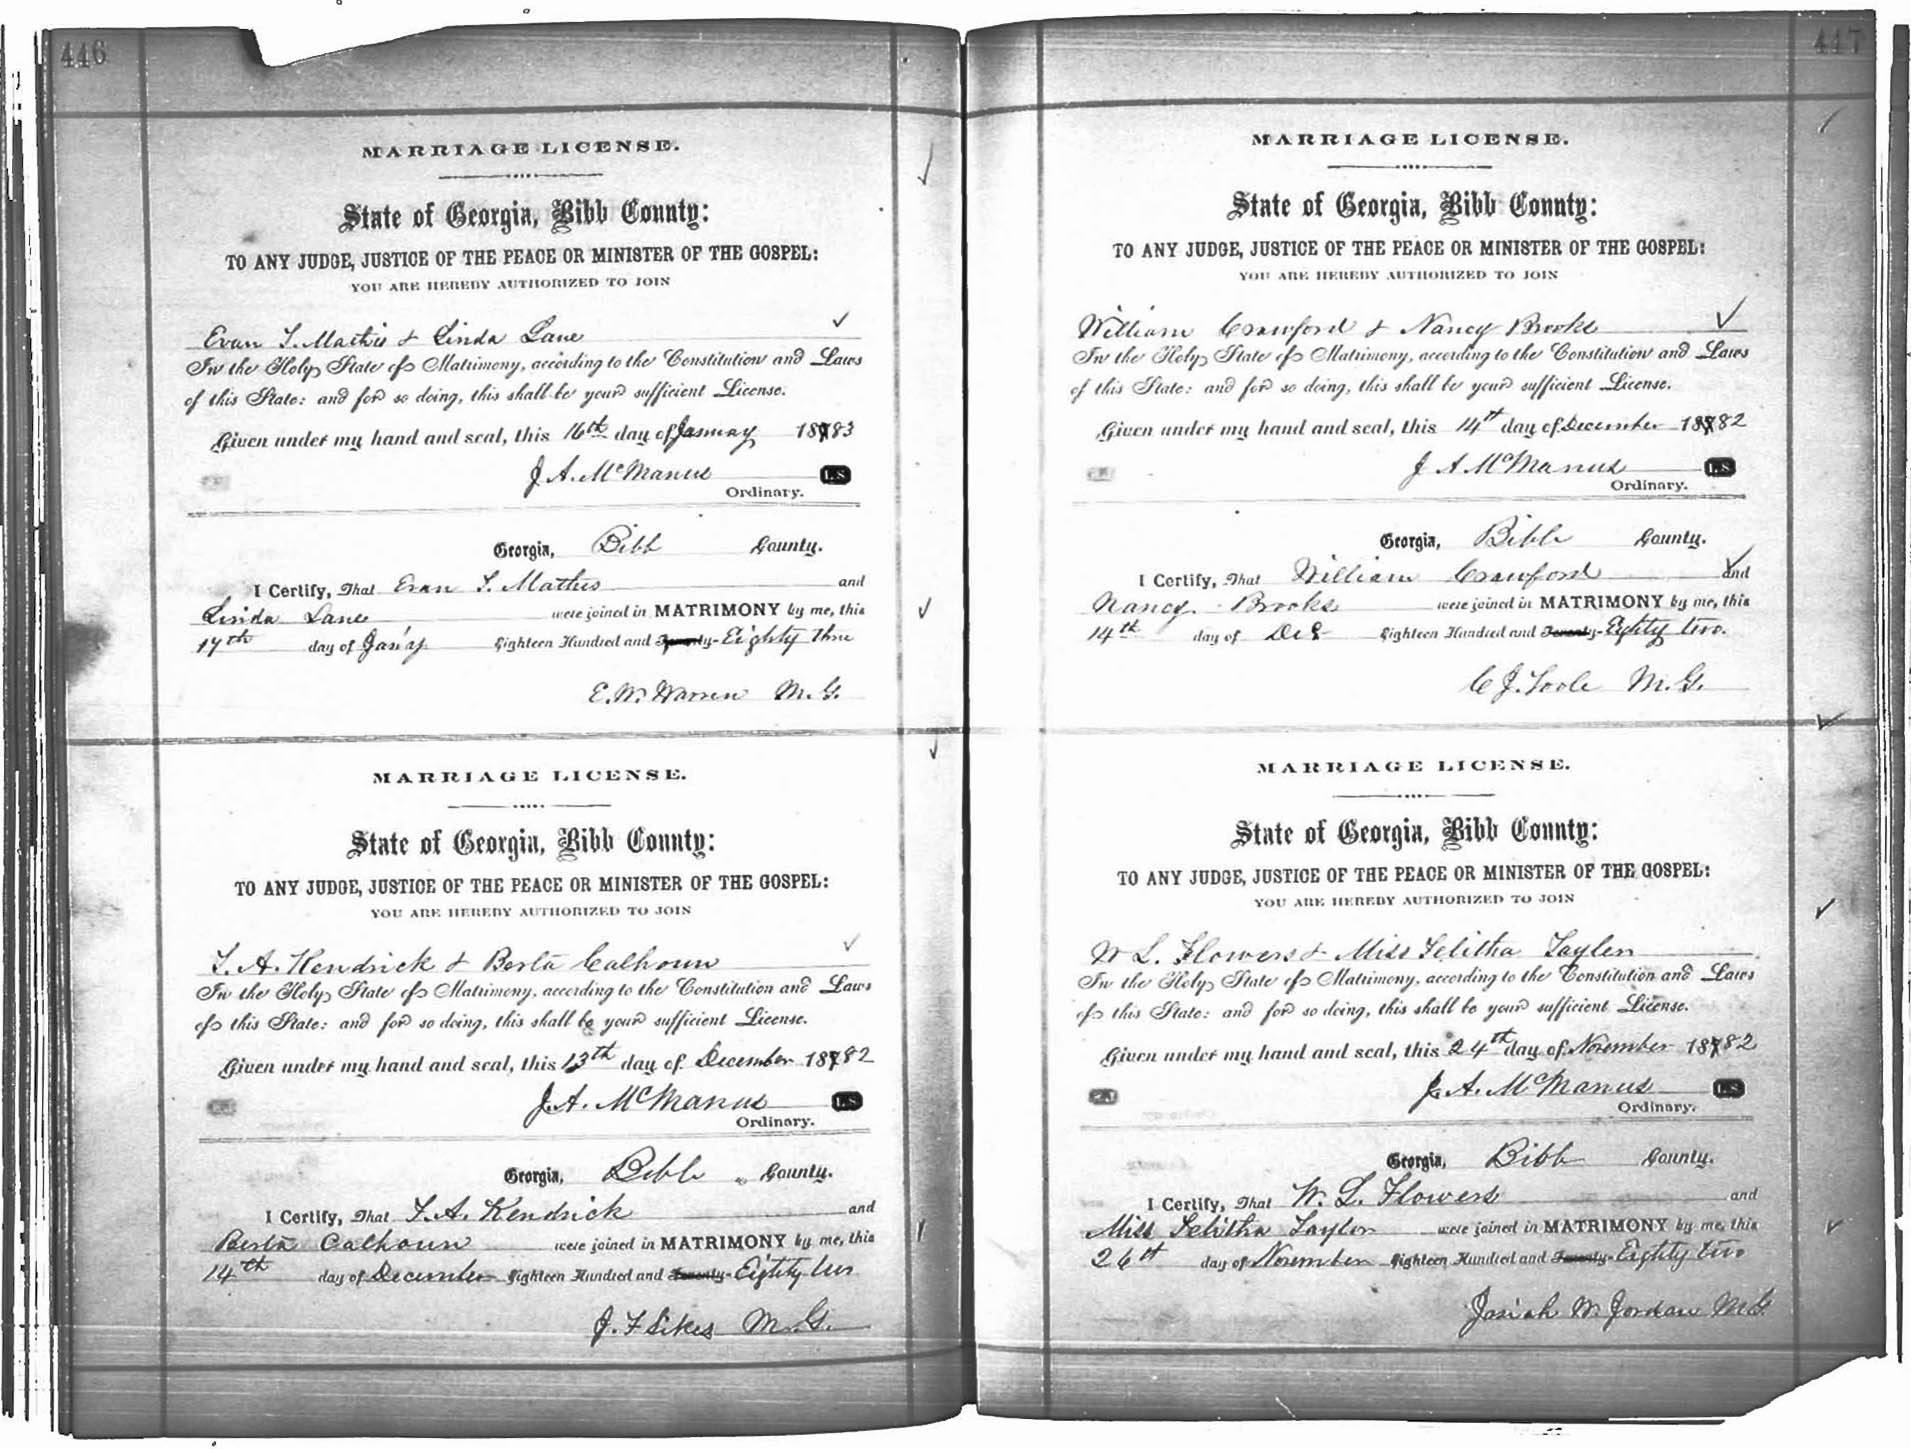 446
MARRIAGE LICENSE.
State of Georgia, Bibb County:
TO ANY JUDGE, JUSTICE OF THE PEACE OR MINISTER OF THE GOSPEL:
YOU ARE HEREBY AUTHORIZED TO JOIN
Evan T. Mathis & Linda Lane
In the Holy State of Matrimony, according to the Constitution and Laws
of this State: and for so doing, this shall be your sufficient License.
Given under my hand and seal, this 16th day of January 1883
J. A. McManus L.S.
Ordinary.
Georgia, Bibb County.
I Certify, That Evan T. Mathis and
Linda Lane were joined in MATRIMONY by me, this
17th day of Jan'y Eighteen Hundred and Seventy- Eighty Three
E. W. Warren M.G.
MARRIAGE LICENSE.
State of Georgia, Bibb County:
TO ANY JUDGE, JUSTICE OF THE PEACE OR MINISTER OF THE GOSPEL:
YOU ARE HEREBY AUTHORIZED TO JOIN
T. A. Kendrick & Berta Calhoun
In the Holy State of Matrimony, according to the Constitution and Laws
of this State: and for so doing, this shall be your sufficient License.
Given under my hand and seal, this 13th day of December 1882
J. A. McManus L.S.
Ordinary.
Georgia, Bibb County.
I Certify, That T. A. Kendrick and
Berta Calhoun were joined in MATRIMONY by me, this
14th day of December Eighteen Hundred and Seventy- Eighty two
J. F. Sikes M.G.
417
MARRIAGE LICENSE.
State of Georgia, Bibb County:
TO ANY JUDGE, JUSTICE OF THE PEACE OR MINISTER OF THE GOSPEL:
YOU ARE HEREBY AUTHORIZED TO JOIN
William Crawford & Nancy Brooks
In the Holy State of Matrimony, according to the Constitution and Laws
of this State: and for so doing, this shall be your sufficient License.
Given under my hand and seal, this 14th day of December 1882
J. A. McManus L.S.
Ordinary.
Georgia, Bibb County.
I Certify, That William Crawford and
Nancy Brooks were joined in MATRIMONY by me, this
14th day of Dec Eighteen Hundred and Seventy- Eighty two.
C. J. Toole M.G.
MARRIAGE LICENSE.
State of Georgia, Bibb County:
TO ANY JUDGE, JUSTICE OF THE PEACE OR MINISTER OF THE GOSPEL:
YOU ARE HEREBY AUTHORIZED TO JOIN
W. L. Flowers & Miss Telitha Taylor
In the Holy State of Matrimony, according to the Constitution and Laws
of this State: and for so doing, this shall be your sufficient License.
Given under my hand and seal, this 24th day of November 1882
J. A. McManus L.S.
Ordinary.
Georgia, Bibb County.
I Certify, That W. L. Flowers and
Miss Telitha Taylor were joined in MATRIMONY by me, this
26th day of November Eighteen Hundred and Seventy- Eighty two
Josiah W. Jordan M.G.